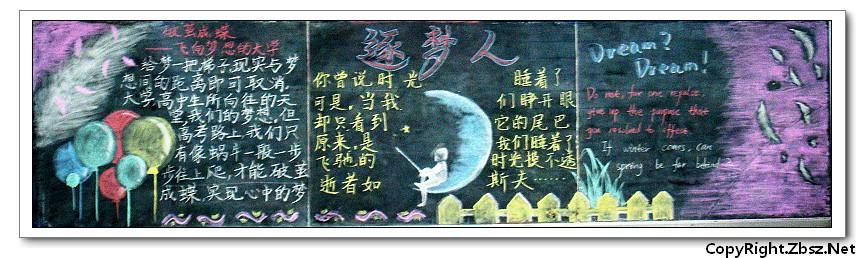 破茧成蝶
——飞向梦想的大学
给梦一把梯子,现实与梦
想间的距离即可取消.
大学,高中生所向往的天
堂,我们的梦想,但
高考路上,我们只
有像蜗牛一般一步
步往上爬,才能破茧
成蝶,实现心中的梦
逐梦人
你曾说时光
可是,当我
却只看到
原来,是
飞驰的
逝者如
睡着了
们睁开眼
它的尾巴
我们睡着了
时光换不透
斯夫……
Dream?
Dream!
Do not, for one repulse,
give up the purpose that
you resolved to effect.
If winter comes, can
spring be far behind?
CopyRight.Zbsz.Net